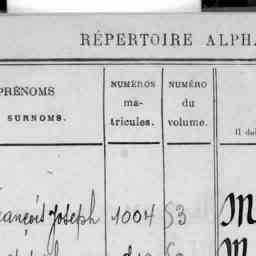 RÉPERTOIRE ALPH
PRÉNOMS
SURNOMS.
NUMÉROS
ma-
tricules.
NUMÉRO
du
volume.
Il
François Joseph 1004 53 M
M